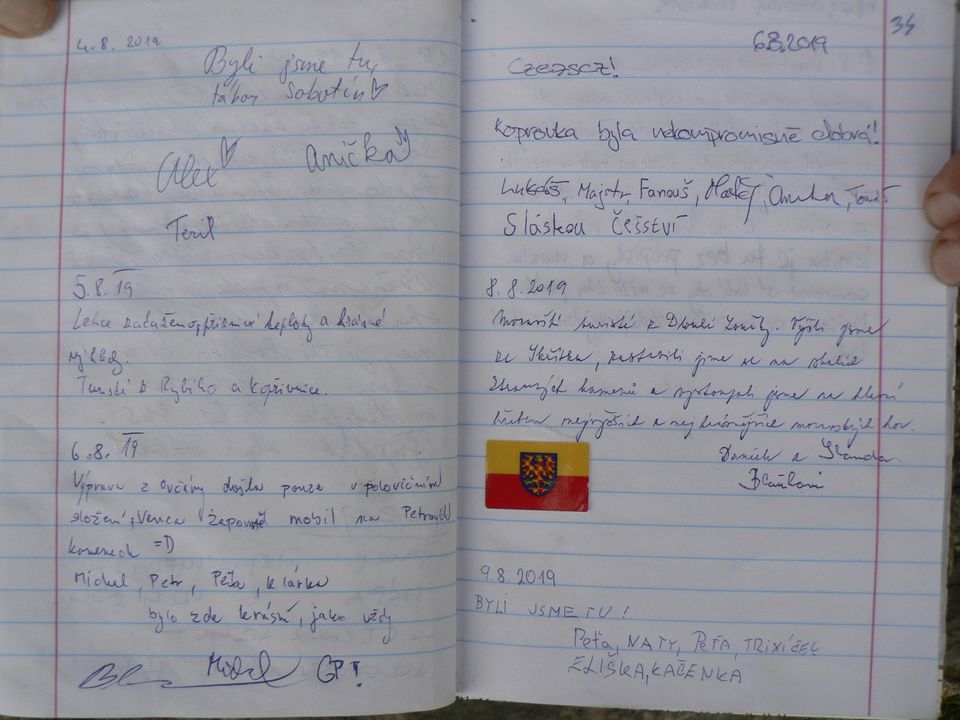 4.8. 2019
Byli jsme tu,
tábor Sobotín
Alex
Anička
Teril
5.8.19
Lehce zataženo, příznivé teploty a krásné
výhledy.
Turisté z Rybího a Kopřivnice.
6.8.19
Výprava z Ovčárny došla pouze v polovičním
složení, Venca zapomněl mobil na Petrových
kamenech =D
Michal, Petr, Péťa, Klárka
bylo zde krásně, jako vždy
Michal GP!
34
6.8.2019
Czeascz!
Koprovka byla nekompromisně dobrá!
Lukáš, Majstr, Fanouš, Matěj, Tomáš
S láskou Češství
8.8.2019
Moravští turisté z Dlouhé Loučky. Vyšli jsme
ze Skřítku, zastavili jsme se na skalách
Ztracených kamenů a vystoupali jsme na hlavní
hřeben nejvyšších a nejkrásnějších moravských hor.
Daniel a Standa
9.8.2019
BYLI JSME TU!
Peťa, NATY, PEŤA, TRIXÍČEK
ELIŠKA, KAČENKA